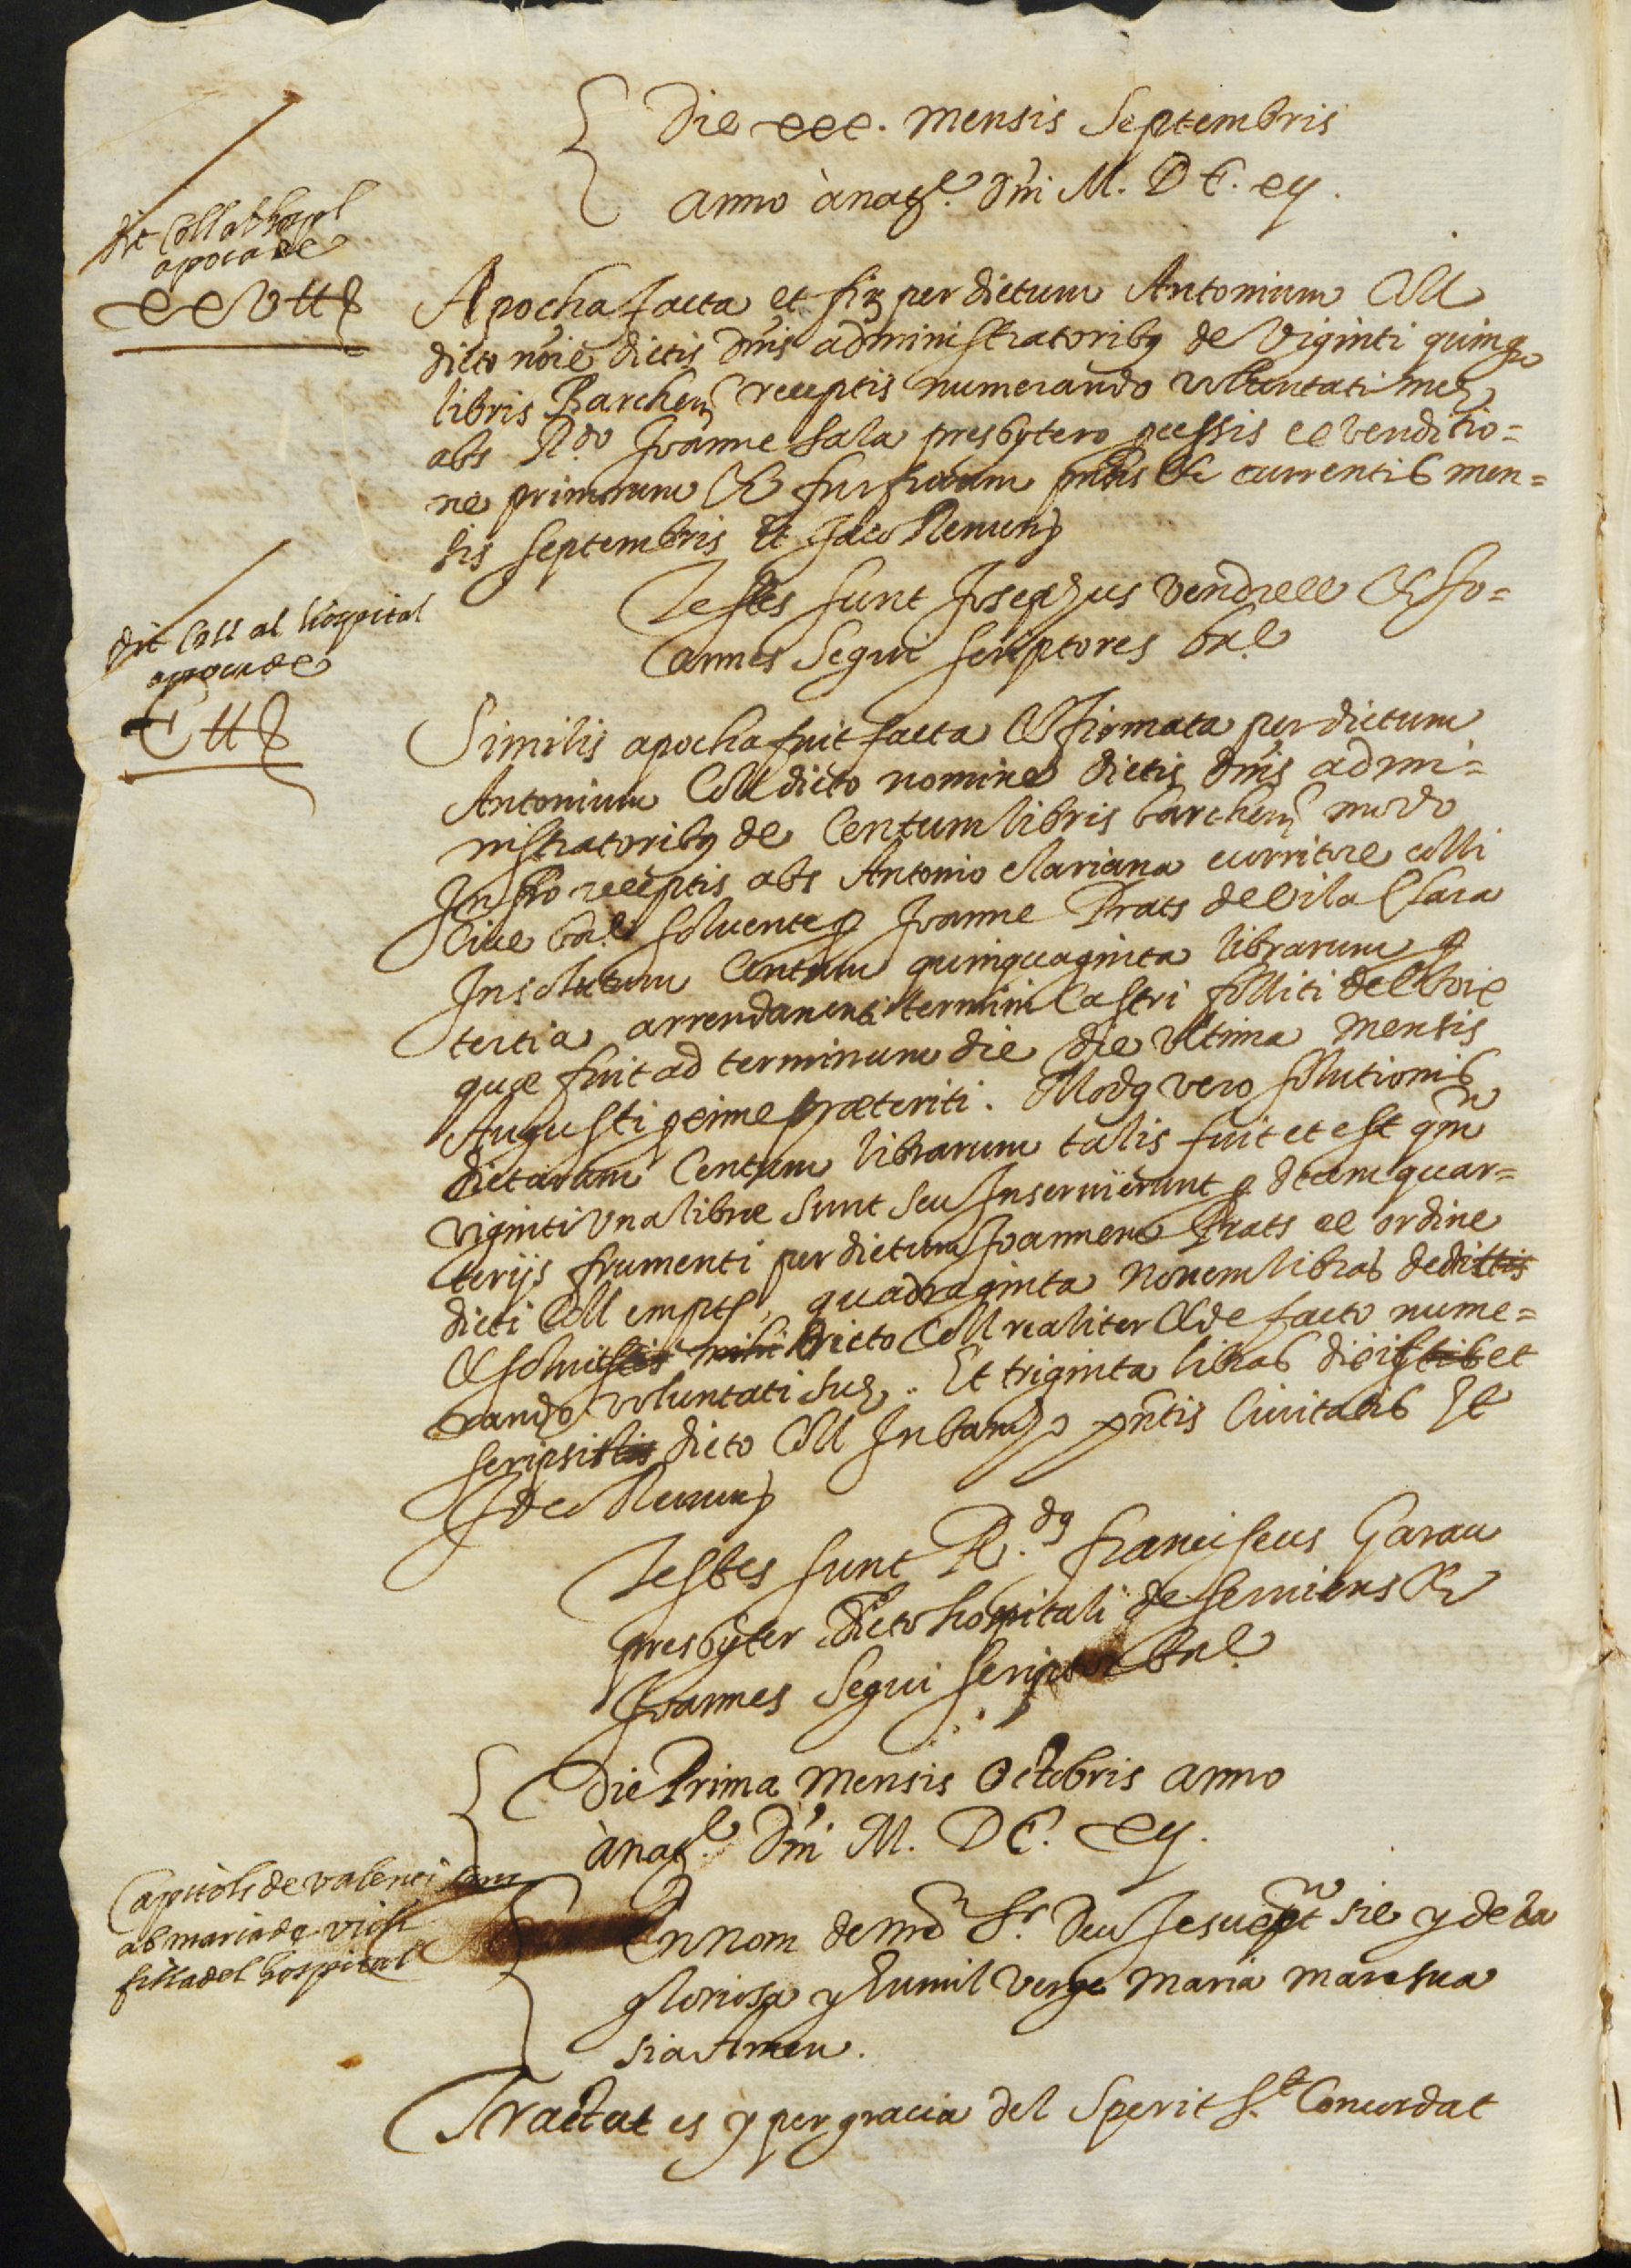 Die xxx. mensis Septembris
anno à nat.e Dñi M. D C. xij.
dit Coll al hospl
apoca de
xxv ll s
Apocha facta et fir per dictum Antonium Coll
dicto nõie dictis dñis administratoribus de viginti quinque
libris Barchen receptis numerando voluntati meæ
abs R.do Joanne Sala presbytero processis ex venditio=
ne primorum & furfurum pñtis & currentis men=
sis septembris Et Ideo Renun
Testes sunt Josephus Vendrell & Jo=
annes Segui scriptores Bñe
dit Coll al hospital
apoca de
C ll s
Similis apocha fuit facta & firmata per dictum
Antonium Coll dicto nomine dictis dñis admi=
nistratoribus de Centum libris barchen modo
Infro receptis abs Antonio Mariana curritore colli
Cive Bñe solvente p Joanne Prats de Vila Clara
In solutum Centum quinquaginta librarum p
tertia arrendamenti termini Castri folliti de Boix
quæ fuit ad terminum die die ultima mensis
Augusti proxime præteriti. Modus vero solutionis
dictarum Centum librarum talis fuit et est qm
viginti una libræ sunt seu Inservierunt p decem quar=
terijs frumenti per dictum Joannem Prats ex ordine
dicti Coll empt, quadraginta novem libras dedistis
& solvitstis mihi dicto Coll realiter & de facto nume=
rando voluntati suæ. Et triginta libras dixistis et
scripsistis dicto Coll In banco pñtis Civitatis Et
Ideo Renun
Testes sunt R.dus franciscus Garau
presbyter dicto hospitali deserviens &
Joannes Segui scriptor Bñe
Die Prima mensis Octobris anno
à nat.e Dñi M. D C. xij.
Capitols de Valenti
ab maria de vich
filla del hospital
En nom de nrõ Sr. Deu Jesucpt sie y de la
gloriosa y humil verge Maria mare sua
sia Amen.
Tractat es y per gracia del Sperit St. Concordat